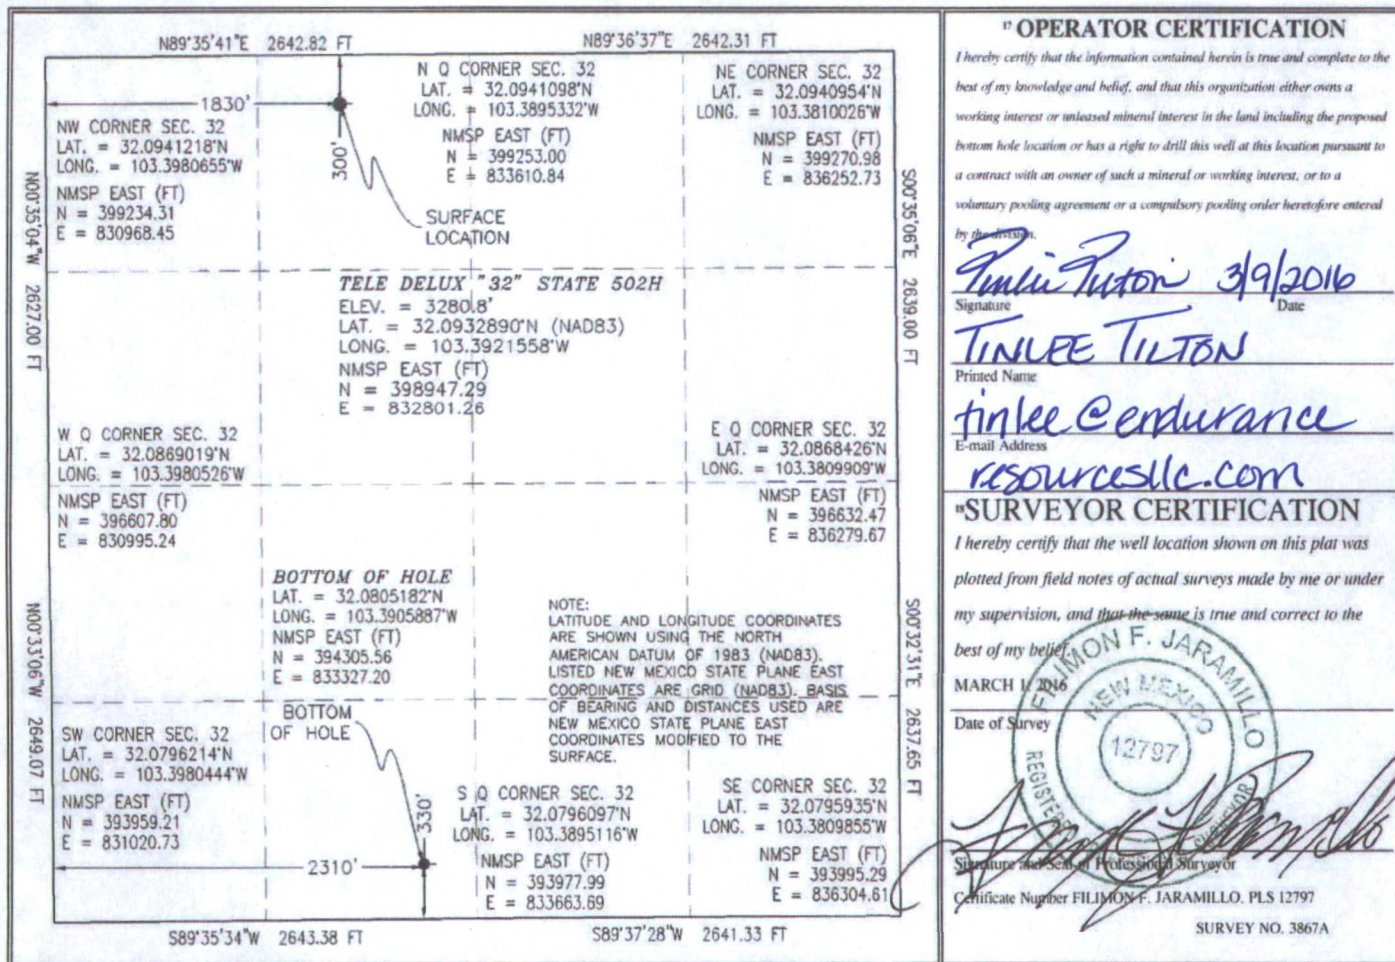 N89°35'41"E 2642.82 FT
N89°36'37"E 2642.31 FT
1830'
300'
NW CORNER SEC. 32
LAT. = 32.0941218°N
LONG. = 103.3980655°W
NMSP EAST (FT)
N = 399234.31
E = 830968.45
N Q CORNER SEC. 32
LAT. = 32.0941098°N
LONG. = 103.3895332°W
NMSP EAST (FT)
N = 399253.00
E = 833610.84
NE CORNER SEC. 32
LAT. = 32.0940954°N
LONG. = 103.3810026°W
NMSP EAST (FT)
N = 399270.98
E = 836252.73
SURFACE
LOCATION
N00°35'04"W 2627.00 FT
S00°35'06"E 2639.00 FT
TELE DELUX "32" STATE 502H
ELEV. = 3280.8'
LAT. = 32.0932890°N (NAD83)
LONG. = 103.3921558°W
NMSP EAST (FT)
N = 398947.29
E = 832801.26
W Q CORNER SEC. 32
LAT. = 32.0869019°N
LONG. = 103.3980526°W
NMSP EAST (FT)
N = 396607.80
E = 830995.24
E Q CORNER SEC. 32
LAT. = 32.0868426°N
LONG. = 103.3809909°W
NMSP EAST (FT)
N = 396632.47
E = 836279.67
BOTTOM OF HOLE
LAT. = 32.0805182°N
LONG. = 103.3905887°W
NMSP EAST (FT)
N = 394305.56
E = 833327.20
NOTE:
LATITUDE AND LONGITUDE COORDINATES
ARE SHOWN USING THE NORTH
AMERICAN DATUM OF 1983 (NAD83).
LISTED NEW MEXICO STATE PLANE EAST
COORDINATES ARE GRID (NAD83). BASIS
OF BEARING AND DISTANCES USED ARE
NEW MEXICO STATE PLANE EAST
COORDINATES MODIFIED TO THE
SURFACE.
N00°33'06"W 2649.07 FT
S00°32'31"E 2637.65 FT
BOTTOM
OF HOLE
SW CORNER SEC. 32
LAT. = 32.0796214°N
LONG. = 103.3980444°W
NMSP EAST (FT)
N = 393959.21
E = 831020.73
2310'
330'
S Q CORNER SEC. 32
LAT. = 32.0796097°N
LONG. = 103.3895116°W
NMSP EAST (FT)
N = 393977.99
E = 833663.69
SE CORNER SEC. 32
LAT. = 32.0795935°N
LONG. = 103.3809855°W
NMSP EAST (FT)
N = 393995.29
E = 836304.61
S89°35'34"W 2643.38 FT
S89°37'28"W 2641.33 FT
17 OPERATOR CERTIFICATION
I hereby certify that the information contained herein is true and complete to the
best of my knowledge and belief, and that this organization either owns a
working interest or unleased mineral interest in the land including the proposed
bottom hole location or has a right to drill this well at this location pursuant to
a contract with an owner of such a mineral or working interest, or to a
voluntary pooling agreement or a compulsory pooling order heretofore entered
by the division.
Tinlee Tilton 3/9/2016
Signature Date
TINLEE TILTON
Printed Name
tinlee@endurance
E-mail Address
resourcesllc.com
18 SURVEYOR CERTIFICATION
I hereby certify that the well location shown on this plat was
plotted from field notes of actual surveys made by me or under
my supervision, and that the same is true and correct to the
best of my belief.
MARCH 1, 2016
Date of Survey
FILIMON F. JARAMILLO
NEW MEXICO
12797
Signature and Seal of Professional Surveyor
Certificate Number FILIMON F. JARAMILLO, PLS 12797
SURVEY NO. 3867A